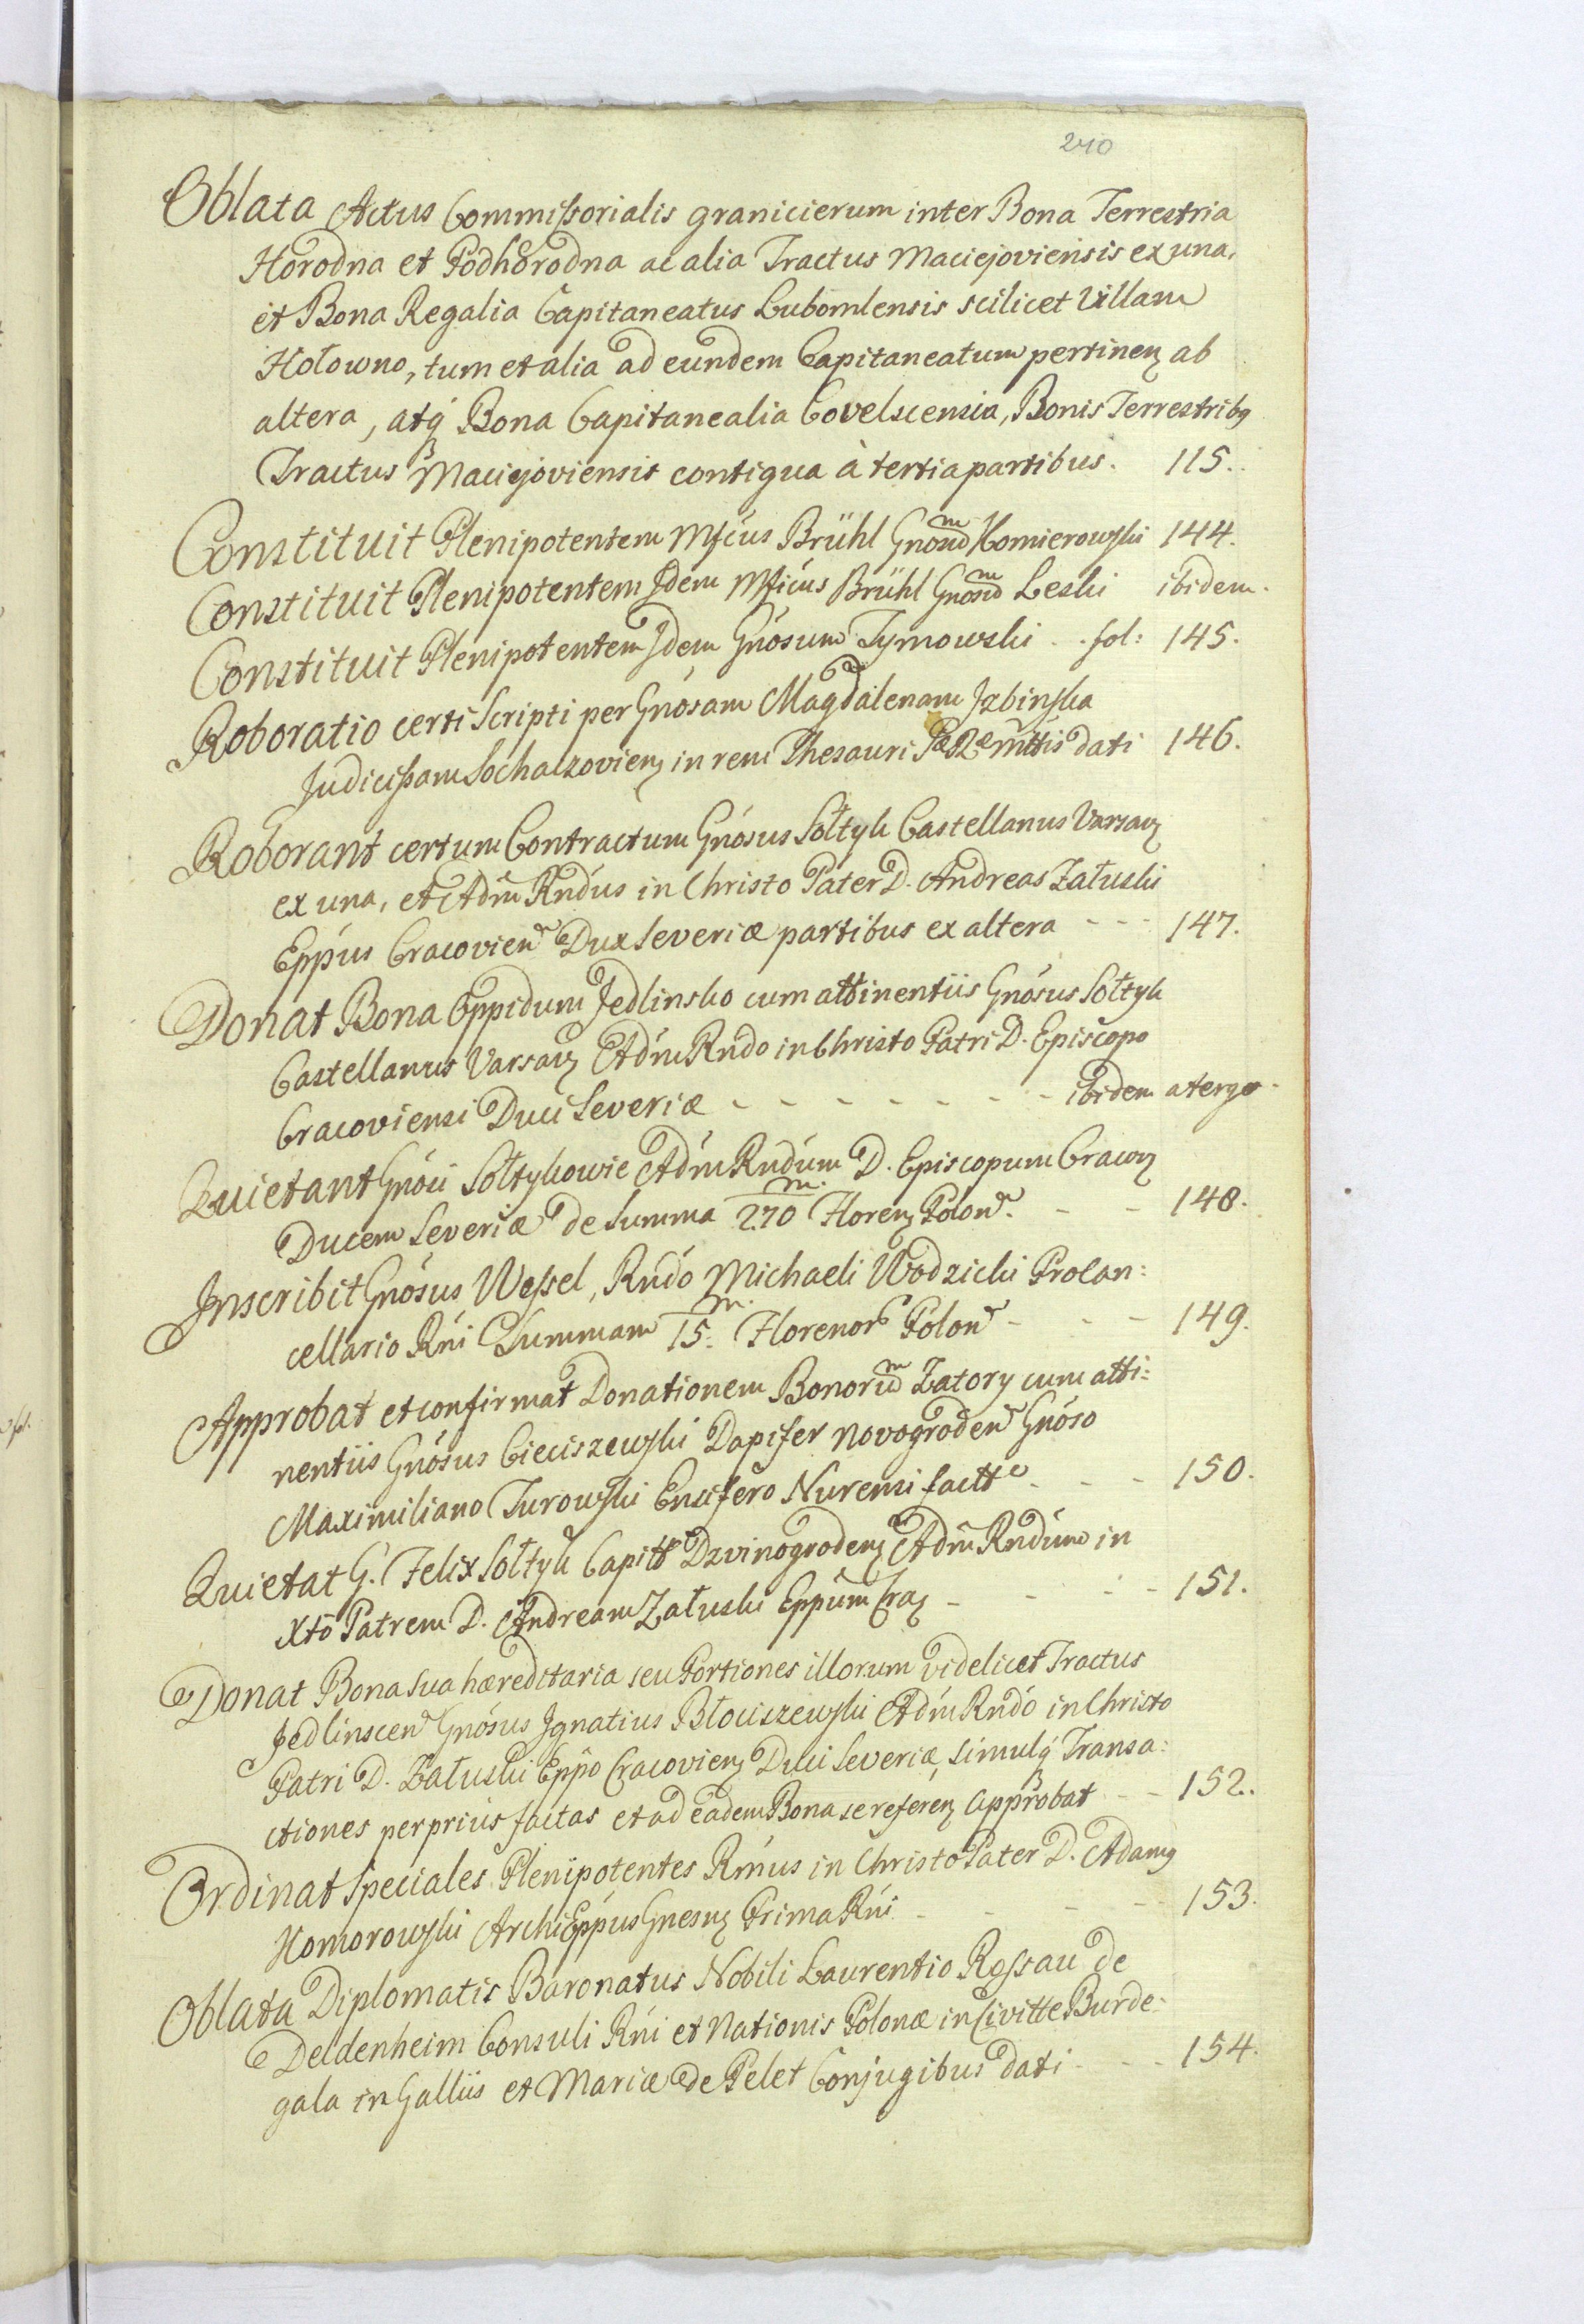 240
Oblata Actus Commissorialis granicierum inter Bona Terrestria
Horodna et Podhorodna ac alia Tractus Maciejoviensis ex una,
et Bona Regalia Capitaneatus Lubomlensis scilicet Villam
Hołowno, tum et alia ad eundem Capitaneatum pertinen ab
altera, atq Bona Capitanealia Covelscensia, Bonis Terrestribq
Tractus Maciejoviensis contigua à tertia partibus. 115.
Constituit Plenipotentem Mfcus Brühl Gnosum Komierowski 144.
Constituit Plenipotentem Idem Mficus Brühl Gnosum Leski ibidem.
Constituit Plenipotentem Idem Gnosum Tymowski . . fol: 145.
Roboratio certi Scripti per Gnosam Magdalenam Izbinska
Judicissam Sochaczovien in rem Thesauri dati 146.
Roborant certum Contractum Gnosus Sołtyk Castellanus Varsav
ex una, et Adm Rndus in Christo Pater D. Andreas Załuski
Eppus Cracovien Dux Severiæ partibus ex altera - - - 147.
Donat Bona Oppidum Jedlinsko cum attinentiis Gnosus Sołtyk
Castellanus Varsav Adm Rndo in Christo Patri D. Episcopo
Cracoviensi Duci Severiæ - - - - - - - ibidem a tergo.
Quietant Gnoci Sołtykowie Adm Rndum D. Episcopum Cracov
Ducem Severiæ de Summa 270 m. Floren Polon. - - 148.
Inscribit Gnosus Wessel, Rndo Michaeli Wodzicki Procan:
cellario Rni Summam 15. m. Florenor Polon - - - 149.
Approbat et confirmat Donationem Bonorum Zatory cum atti:
nentiis Gnosus Cieciszewski Dapifer Novogroden Gnoso
Maximiliano Turowski Ensifero Nurensi factt - - - 150.
Quietat G. Felix Sołtyk Capitt Dzvinogroden Adm Rndum in
Xto Patrem D. Andream Załuski Eppum Crac - - - - 151.
Donat Bona sua hæreditaria seu Portiones illorum videlicet Tractus
Jedlinscen Gnosus Ignatius Błociszewski Adm Rndo in Christo
Patri D. Załuski Eppo Cracovien Duci Severiæ, simulq Transa:
ctiones per prius factas et ad eadem Bona se referen approbat - - 152.
Ordinat Speciales Plenipotentes Rmus in Christo Pater D. Adamq
Komorowski ArchiEppus Gnesn Prima Rni - - - - 153.
Oblata Diplomatis Baronatus Nobili Laurentio Rossau de
Deldenheim Consuli Rni et Nationis Polonæ in Civitte Burde:
gala in Galliis et Mariæ de Pelet Conjugibus dati - - - 154.